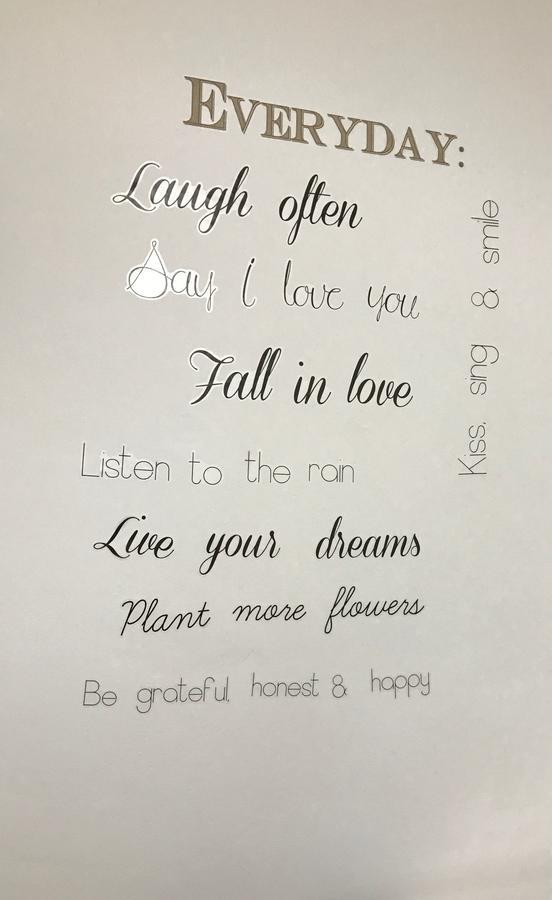 EVERYDAY:
Laugh often
Say i love you
Fall in love
Listen to the rain
Live your dreams
Plant more flowers
Be grateful, honest & happy
Kiss, sing & smile